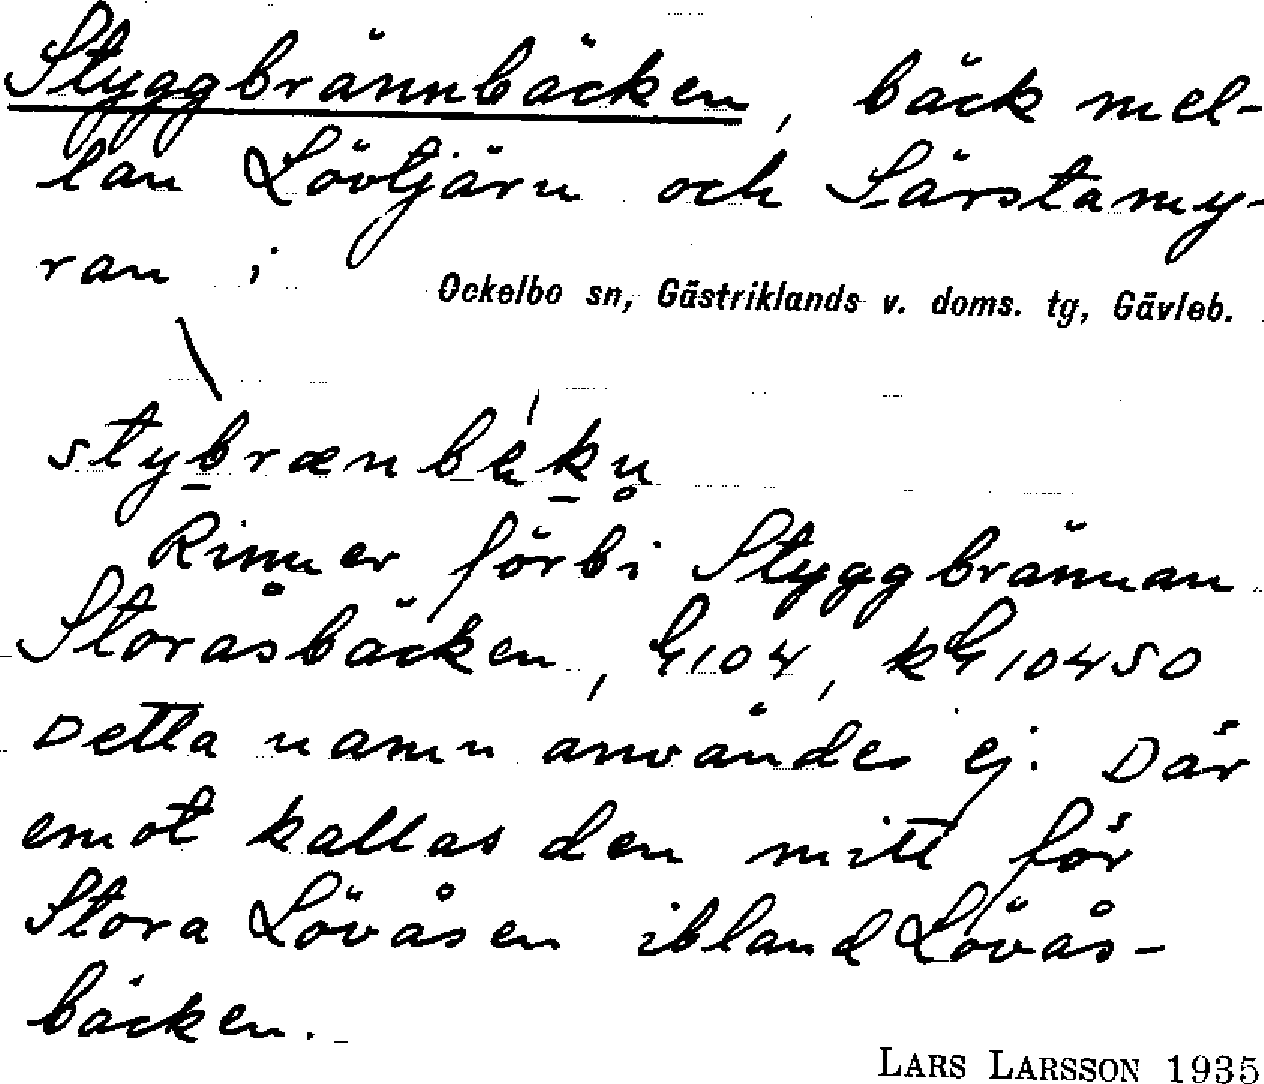 Styggbrännbäcken, bäck mel-
lan Lövtjärn och Särstamy-
ran i Ockelbo sn, Gästriklands v. doms. tg, Gävleb.
stybrænbækn̥
Rinner förbi Styggbrännan
Storåsbäcken, G104, kG10450
Detta namn användes ej. Där
emot kallas den mitt för
Stora Lövåsen ibland Lövås-
bäcken.
LARS LARSSON 1935